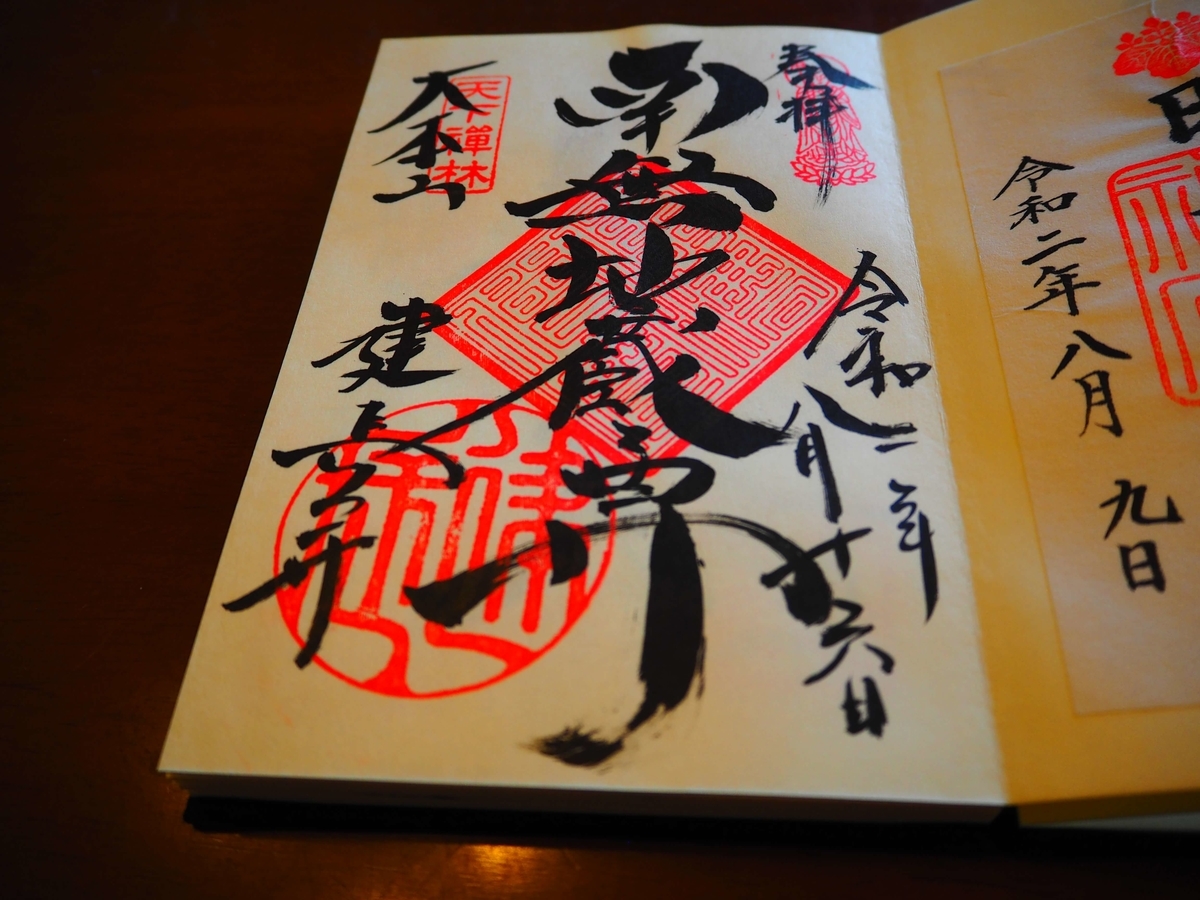 令和二年
八月
九日
奉拝
令和二年
八月十六日
南無地蔵尊
天下禪林
大本山
建長寺